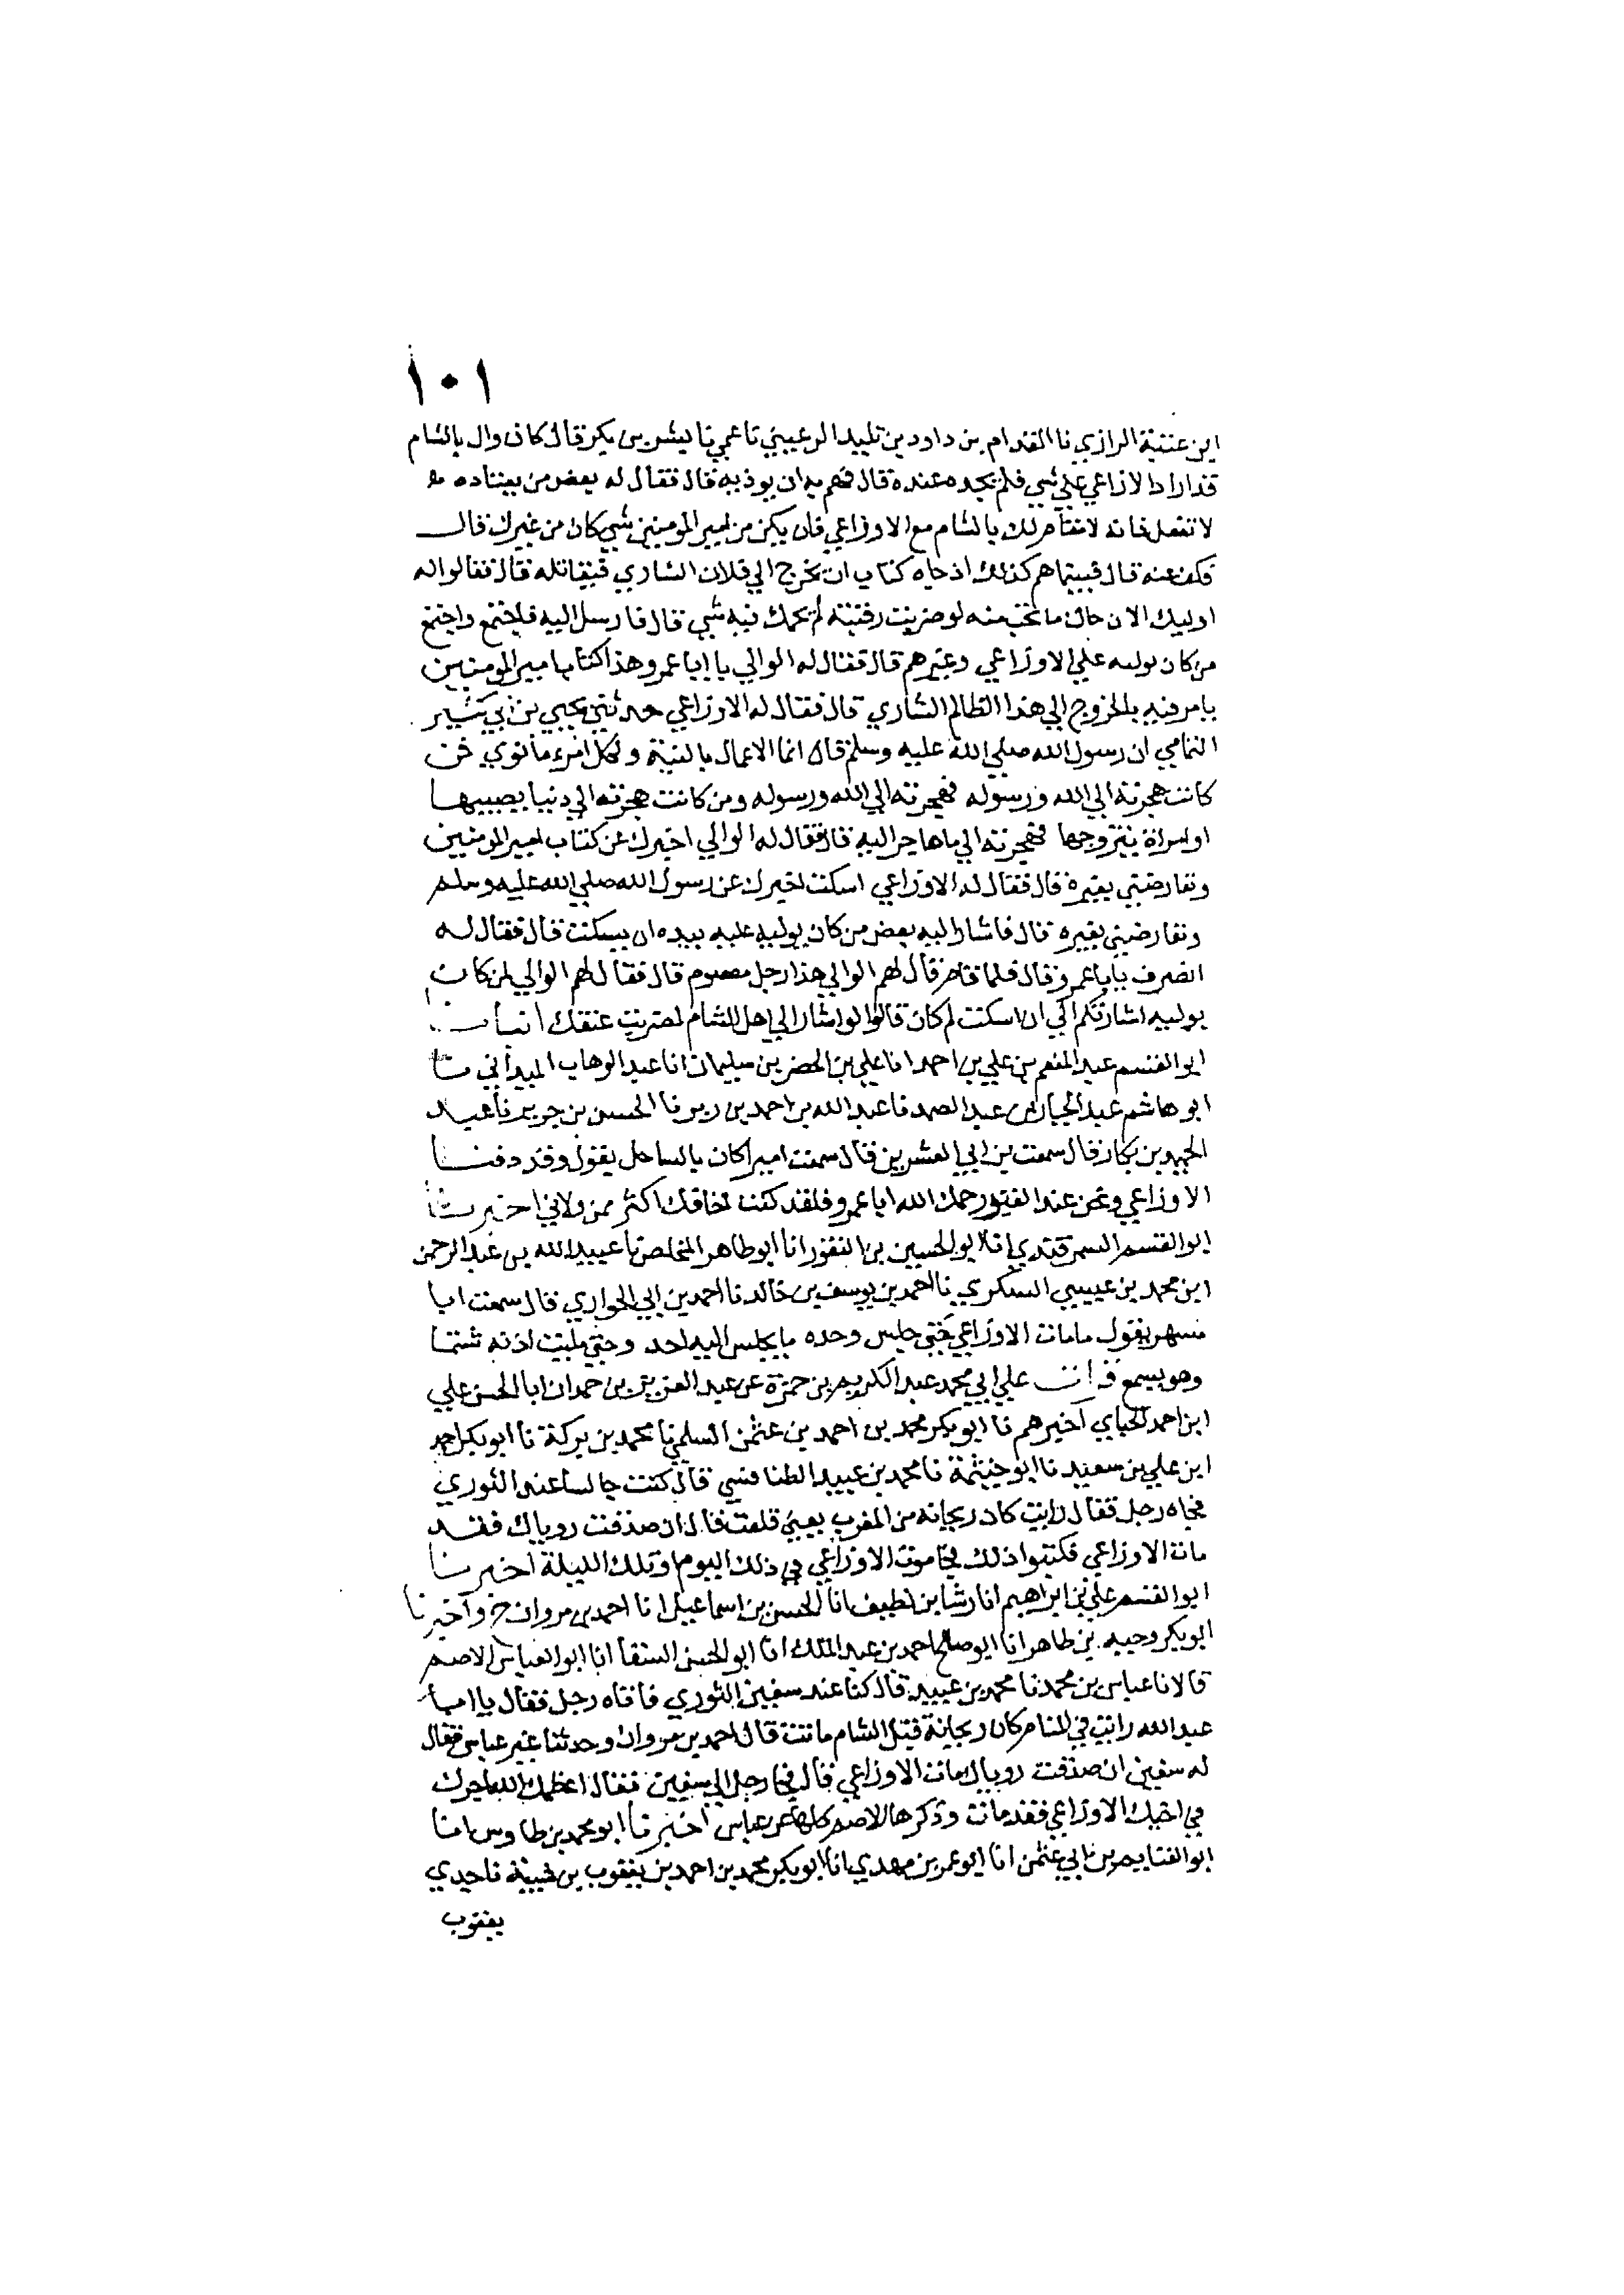 ١٠١
ابن عتيبة الرازي نا المقدام بن داود بن تليد الرعيني نا عمي نا بشر بن بكر قال كان وال بالشام
قد اراد الاوزاعي علي شي فلم يجده عنده قال فهم به ان يوذيه قال فقال له بعض من
لا تفعل فانه لا مقام لك بالشام مع الاوزاعي فان يكن من امير المومنين شي كان من غيرك قال
فكف عنه قال فبينما هم كذلك اذ جاه كتاب ان تخرج الي فلان الشاري فيقاتله قال فقالوا له
اوليك الان جاك ما تحب منه لو ضربت رقبته لم يحمك فيه شي قال فارسل اليه فاجتمع واجتمع
من كان يولبه علي الاوزاعي وغيرهم قال فقال له الوالي يا ابا عمرو هذا كتاب امير المومنين
يامر فيه بالخروج الي هذا الظالم الشاري قال فقال له الاوزاعي حدثني يحيي بن ابي كثير
اليمامي ان رسول الله صلي الله عليه وسلم قال انما الاعمال بالنية ولكل امرء ما نوي فمن
كانت هجرته الي الله ورسوله فهجرته الي الله ورسوله ومن كانت هجرته الي دنيا يصيبها
او امراة يتزوجها فهجرته الي ما هاجر اليه قال فقال له الوالي اخبرك عن كتاب امير المومنين
وتعارضني بغيره قال فقال له الاوزاعي اسكت اخبرك عن رسول الله صلي الله عليه وسلم
وتعارضني بغيره قال فاشار اليه بعض من كان يولبه عليه بيده ان يسكت قال فقال له
انصرف يا با عمرو قال فلما قام قال لهم الوالي هذا رجل معصوم قال فقال لهم الوالي لمن كان
يولبه اشارتكم الي ان اسكت لم كان قالوا لو اشار الي اهل الشام لضربت عنقك انبانا
ابو القسم عبد المنعم بن علي بن احمد انا علي بن الخضر بن سليمان انا عبد الوهاب الميداني نا
ابو هاشم عبد الجبار بن عبد الصمد نا عبد الله بن احمد بن زبر نا الحسن بن جرير نا عبد
الحميد بن بكار قال سمعت بن ابي العشرين قال سمعت اميرا كان بالساحل يقول وقد دفنا
الاوزاعي ونحن عند القبر رحمك الله ابا عمرو فلقد كنت اخافك اكثر ممن ولاني اخبرنا
ابو القسم السمرقندي انا ابو الحسين بن النقور انا ابو طاهر المخلص نا عبيد الله بن عبد الرحمن
ابن محمد بن عيسي السكري نا احمد بن يوسف بن خالد نا احمد بن ابي الحواري قال سمعت ابا
مسهر يقول ما مات الاوزاعي حتي جلس وحده ما يجلس اليه احد وحتي مليت اذنه شتما
وهو يسمع قرات علي ابي محمد عبد الكريم بن حمزة عن عبد العزيز بن حمدان ابا الحسن علي
ابن احمد اخبرهم نا ابو بكر محمد بن احمد بن عثمن السلمي نا محمد بن بركة نا ابو بكر احمد
ابن علي بن سعيد نا ابو خيثمة نا محمد بن عبيد الطنافسي قال كنت جالسا عند الثوري
فجاه رجل فقال رايت كان ريحانه من المغرب يعني قلعت قال ان صدقت روياك فقد
مات الاوزاعي فكتبوا ذلك فجا موت الاوزاعي في ذلك اليوم او تلك الليلة اخبرنا
ابو القسم علي بن ابراهيم انا رشا بن نظيف انا الحسن بن اسماعيل انا احمد بن مروان ح واخبرنا
ابو بكر وجيه بن طاهر انا ابو صالح احمد بن عبد الملك انا ابو الحسن السقا انا ابو العباس الاصم
قالا نا عباس بن محمد نا محمد بن عبيد قال كنا عند سفين الثوري فاتاه رجل فقال يا ابا
عبد الله رايت في المنام كان ريحانة قبل الشام ماتت قال احمد بن مروان وحدثنا غير عباس فقال
له سفين ان صدقت روياك مات الاوزاعي قال فجا رجل الي سفين فقال اعظم الله اجرك
في اخيك الاوزاعي فقد مات وذكرها الاصم كلها عن عباس اخبرنا ابو محمد بن طاوس انا
ابو الغنايم بن ابي عثمن انا ابو عمر بن مهدي انا ابو بكر محمد بن احمد بن يعقوب بن شيبة نا جدي
يعقوب